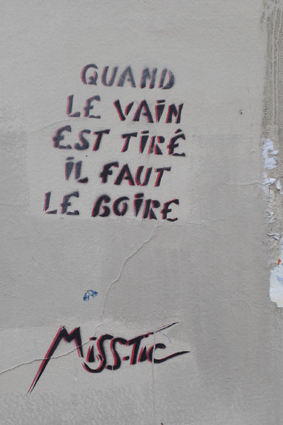 QUAND
LE VAIN
EST TIRÉ
iL FAUT
LE BOIRE
MiSS.TiC